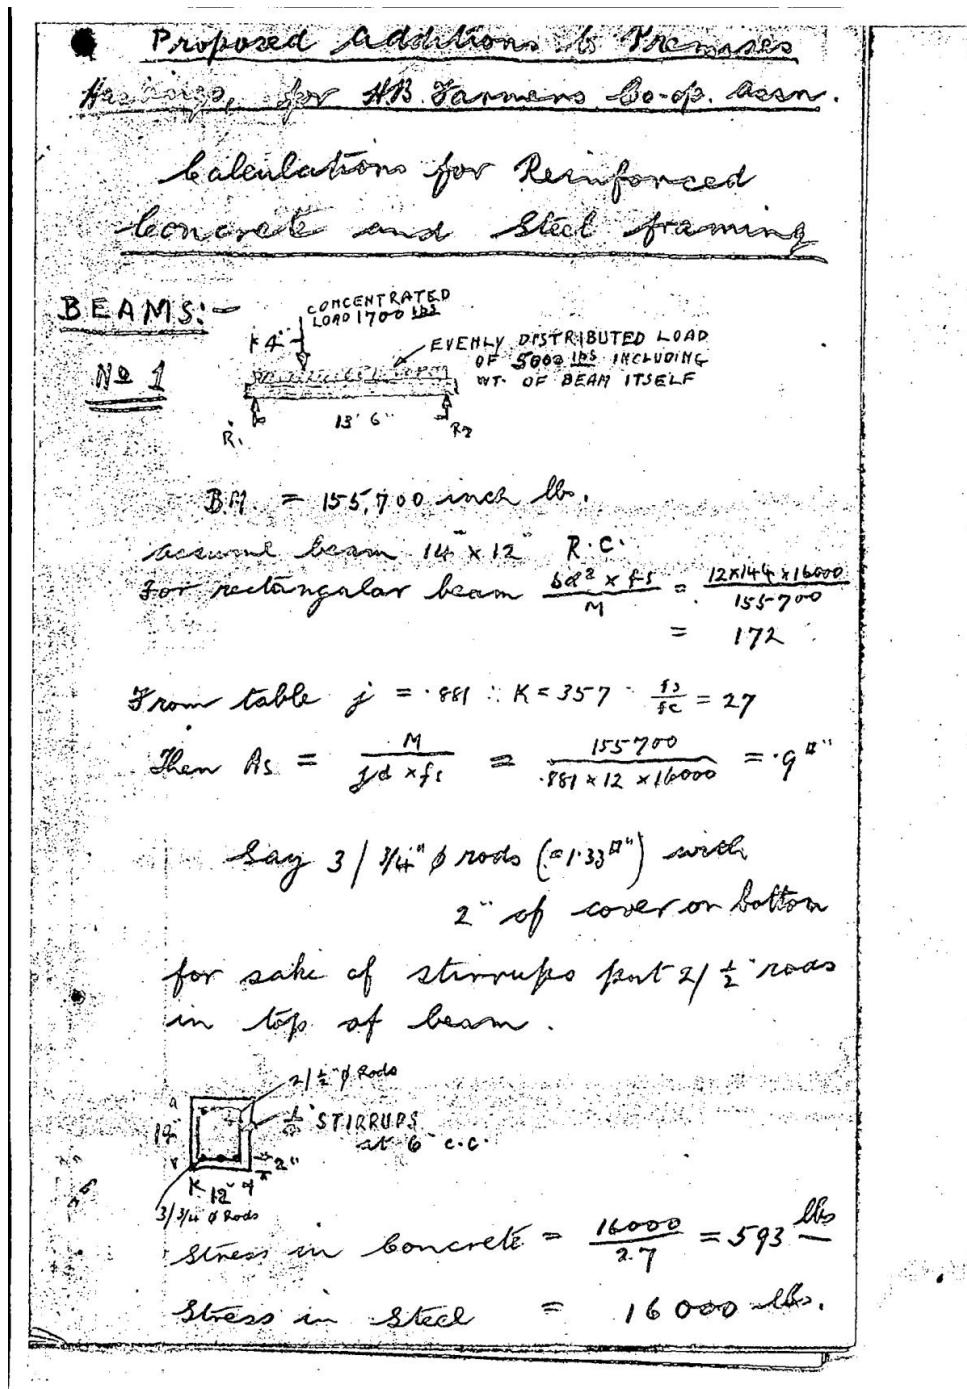 Proposed Additions to Premises
Hastings, for H.B. Farmers Co-op. Assn.
Calculations for Reinforced
Concrete and Steel framing
BEAMS:-
CONCENTRATED
LOAD 1700 lbs
4'
EVENLY DISTRIBUTED LOAD
OF 5000 lbs INCLUDING
WT. OF BEAM ITSELF
No 1
13' 6"
R1
R2
B.M. = 155,700 inch lbs.
assume beam 14" x 12" R.C.
For rectangular beam bd² x fs / M = 12x144x16000 / 155700
= 172
From table j = .881 ∴ K = 357 fs/fc = 27
Then As = M / jd x fs = 155700 / .881 x 12 x 16000 = .9 □"
Say 3/ 3/4" ϕ rods (=1.33□") with
2" of cover on bottom
for sake of stirrups put 2/ 1/2" rods
in top of beam.
2/ 1/2" ϕ Rods
STIRRUPS
at 6" c.c.
14"
2"
12"
3/ 3/4 ϕ Rods
Stress in Concrete = 16000 / 2.7 = 593 lbs
Stress in Steel = 16000 lbs.